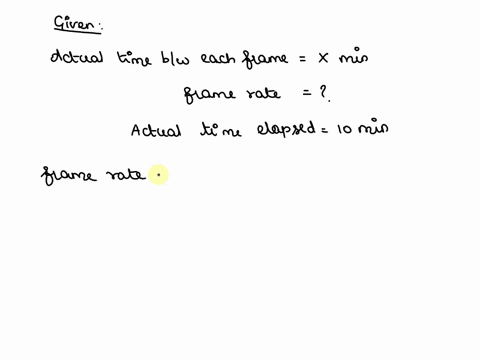 Given:
Actual time b/w each frame = x min
frame rate = ?
Actual time elapsed = 10 min
frame rate